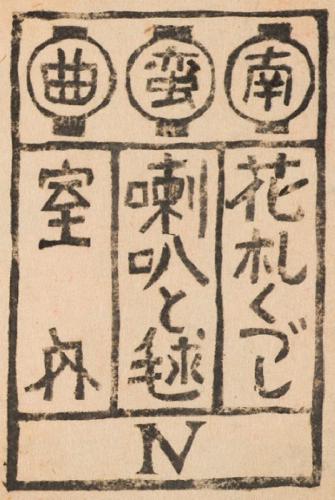 南蛮曲
花札くづし
喇叭と毬
室内
N